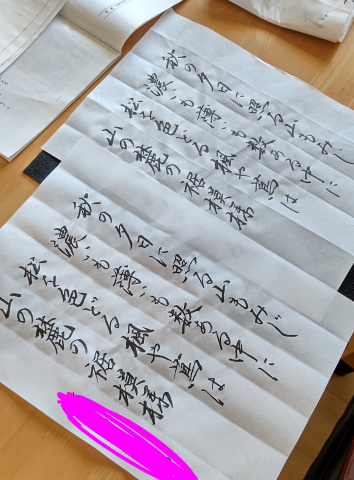 秋の夕日に照る山もみじ
濃いも薄いも数ある中に
松を色どる楓や蔦は
山の麓の裾模様
秋の夕日に照る山もみじ
濃いも薄いも数ある中に
松を色どる楓や蔦は
山の麓の裾模様